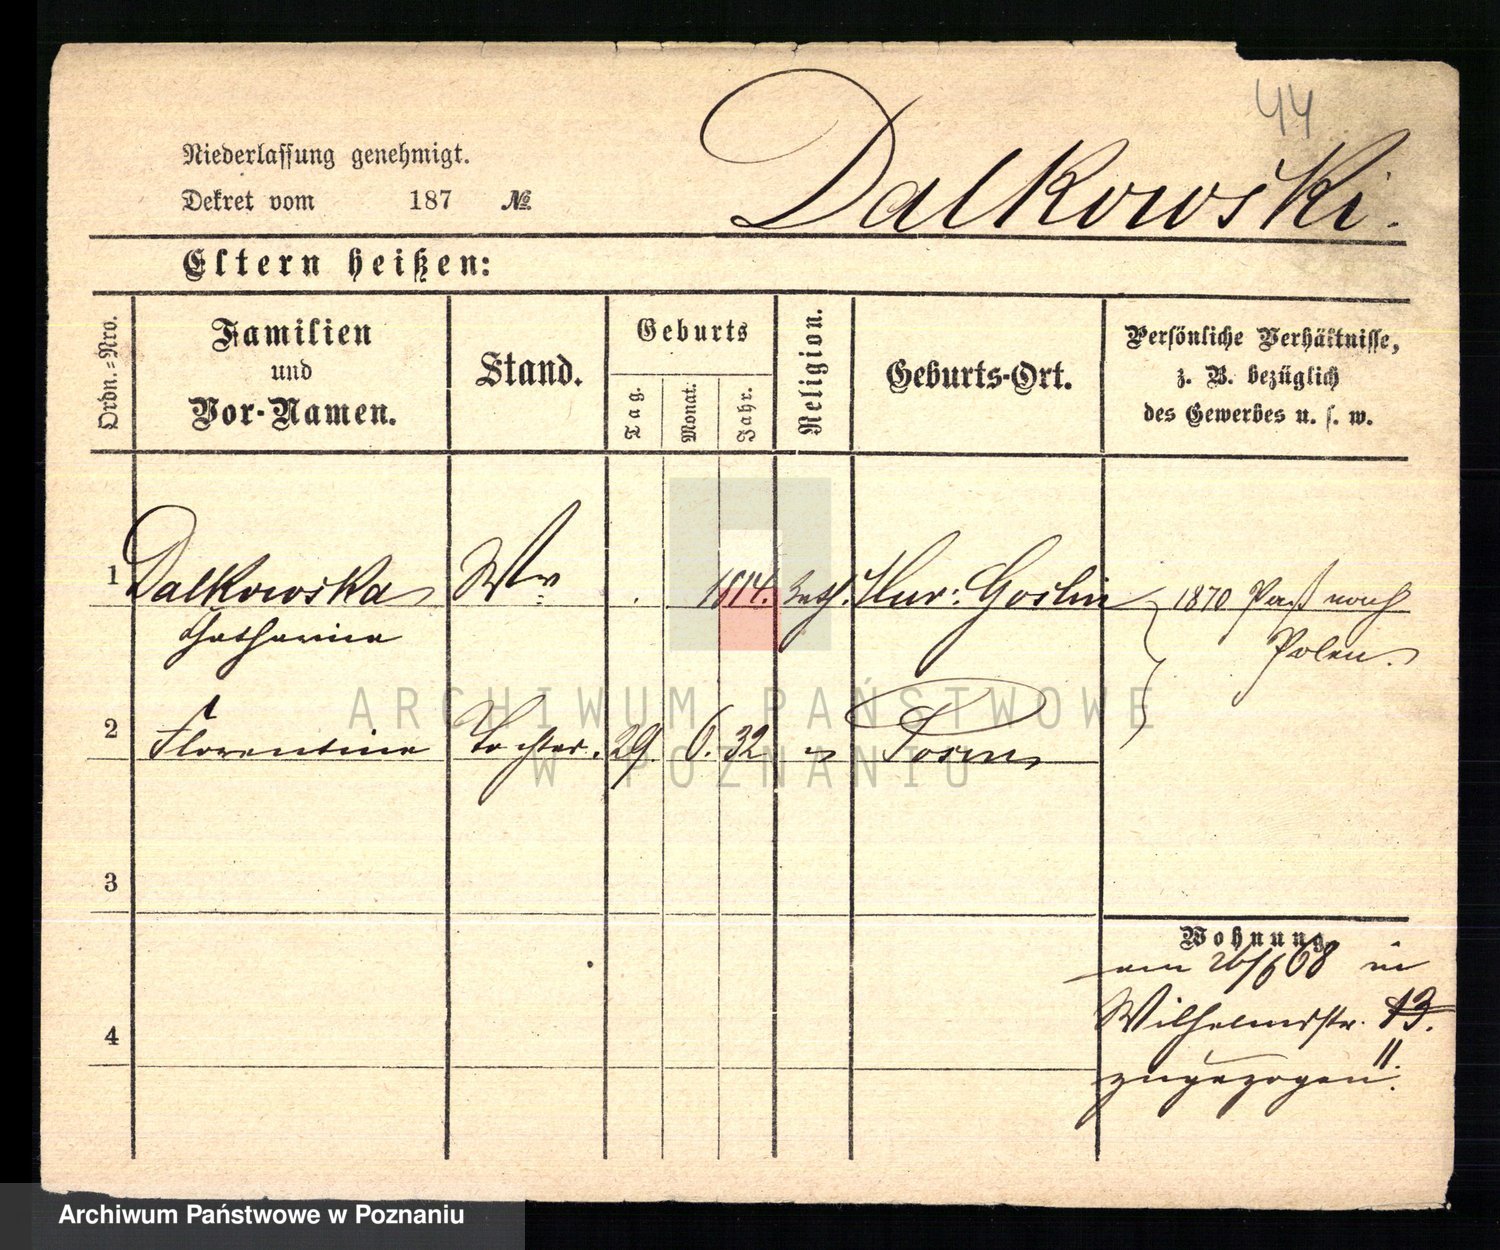 44
Dalkowski.
Niederlassung genehmigt.
Dekret vom 187 №
Eltern heißen:
Ordn.-Nro.
Familien und Vor-Namen.
Stand.
Geburts
Tag.
Monat.
Jahr.
Religion.
Geburts-Ort.
Persönliche Verhältnisse,
z. B. bezüglich
des Gewerbes u. s. w.
1 Dalkowska Wwe 1814. kath. Mur: Goslin 1870 Paß nach
Catharina Polen.
2 Florentine Tochter. 29. 6. 32 " Posen
3
Wohnung
am 26/6 68 in
Wilhelmstr. 13.
4
11.
zugezogen.
ARCHIWUM PAŃSTWOWE
W POZNANIU
Archiwum Państwowe w Poznaniu